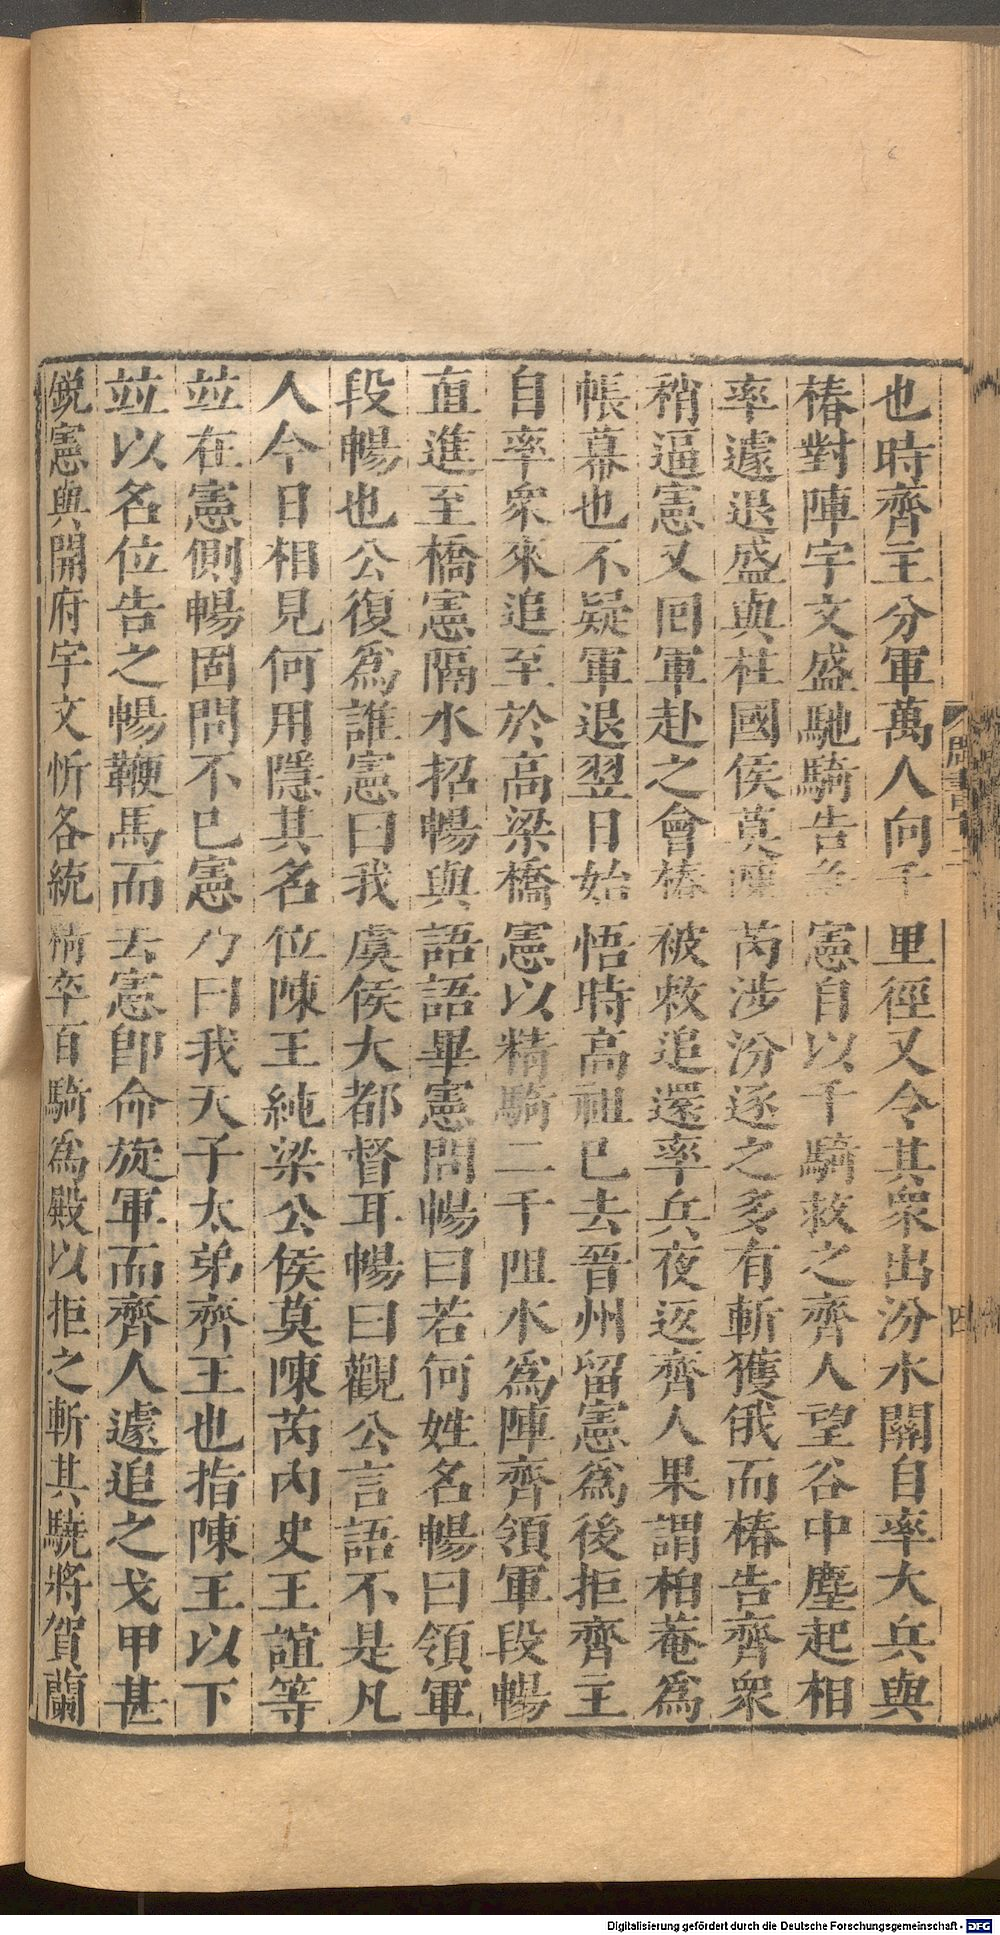 也時齊主分軍萬人向千里徑又令其衆出汾水關自率大兵與
椿對陣宇文盛馳騎告急憲自以千騎救之齊人望谷中塵起相
率遽退盛與柱國侯莫陳芮涉汾逐之多有斬獲俄而椿告齊衆
稍逼憲又回軍赴之會椿被敕追還率兵夜返齊人果謂柏菴爲
帳幕也不疑軍退翌日始悟時高祖已去晉州留憲爲後拒齊主
自率衆來追至於高梁橋憲以精騎二千阻水爲陣齊領軍段暢
直進至橋憲隔水招暢與語語畢憲問暢曰若何姓名暢曰領軍
段暢也公復爲誰憲曰我虞侯大都督耳暢曰觀公言語不是凡
人今日相見何用隱其名位陳王純梁公侯莫陳芮內史王誼等
竝在憲側暢固問不已憲乃曰我天子太弟齊王也指陳王以下
竝以名位告之暢鞭馬而去憲卽命旋軍而齊人遽追之戈甲甚
銳憲與開府宇文忻各統精卒百騎爲殿以拒之斬其驍將賀蘭
四
Digitalisierung gefördert durch die Deutsche Forschungsgemeinschaft - DFG